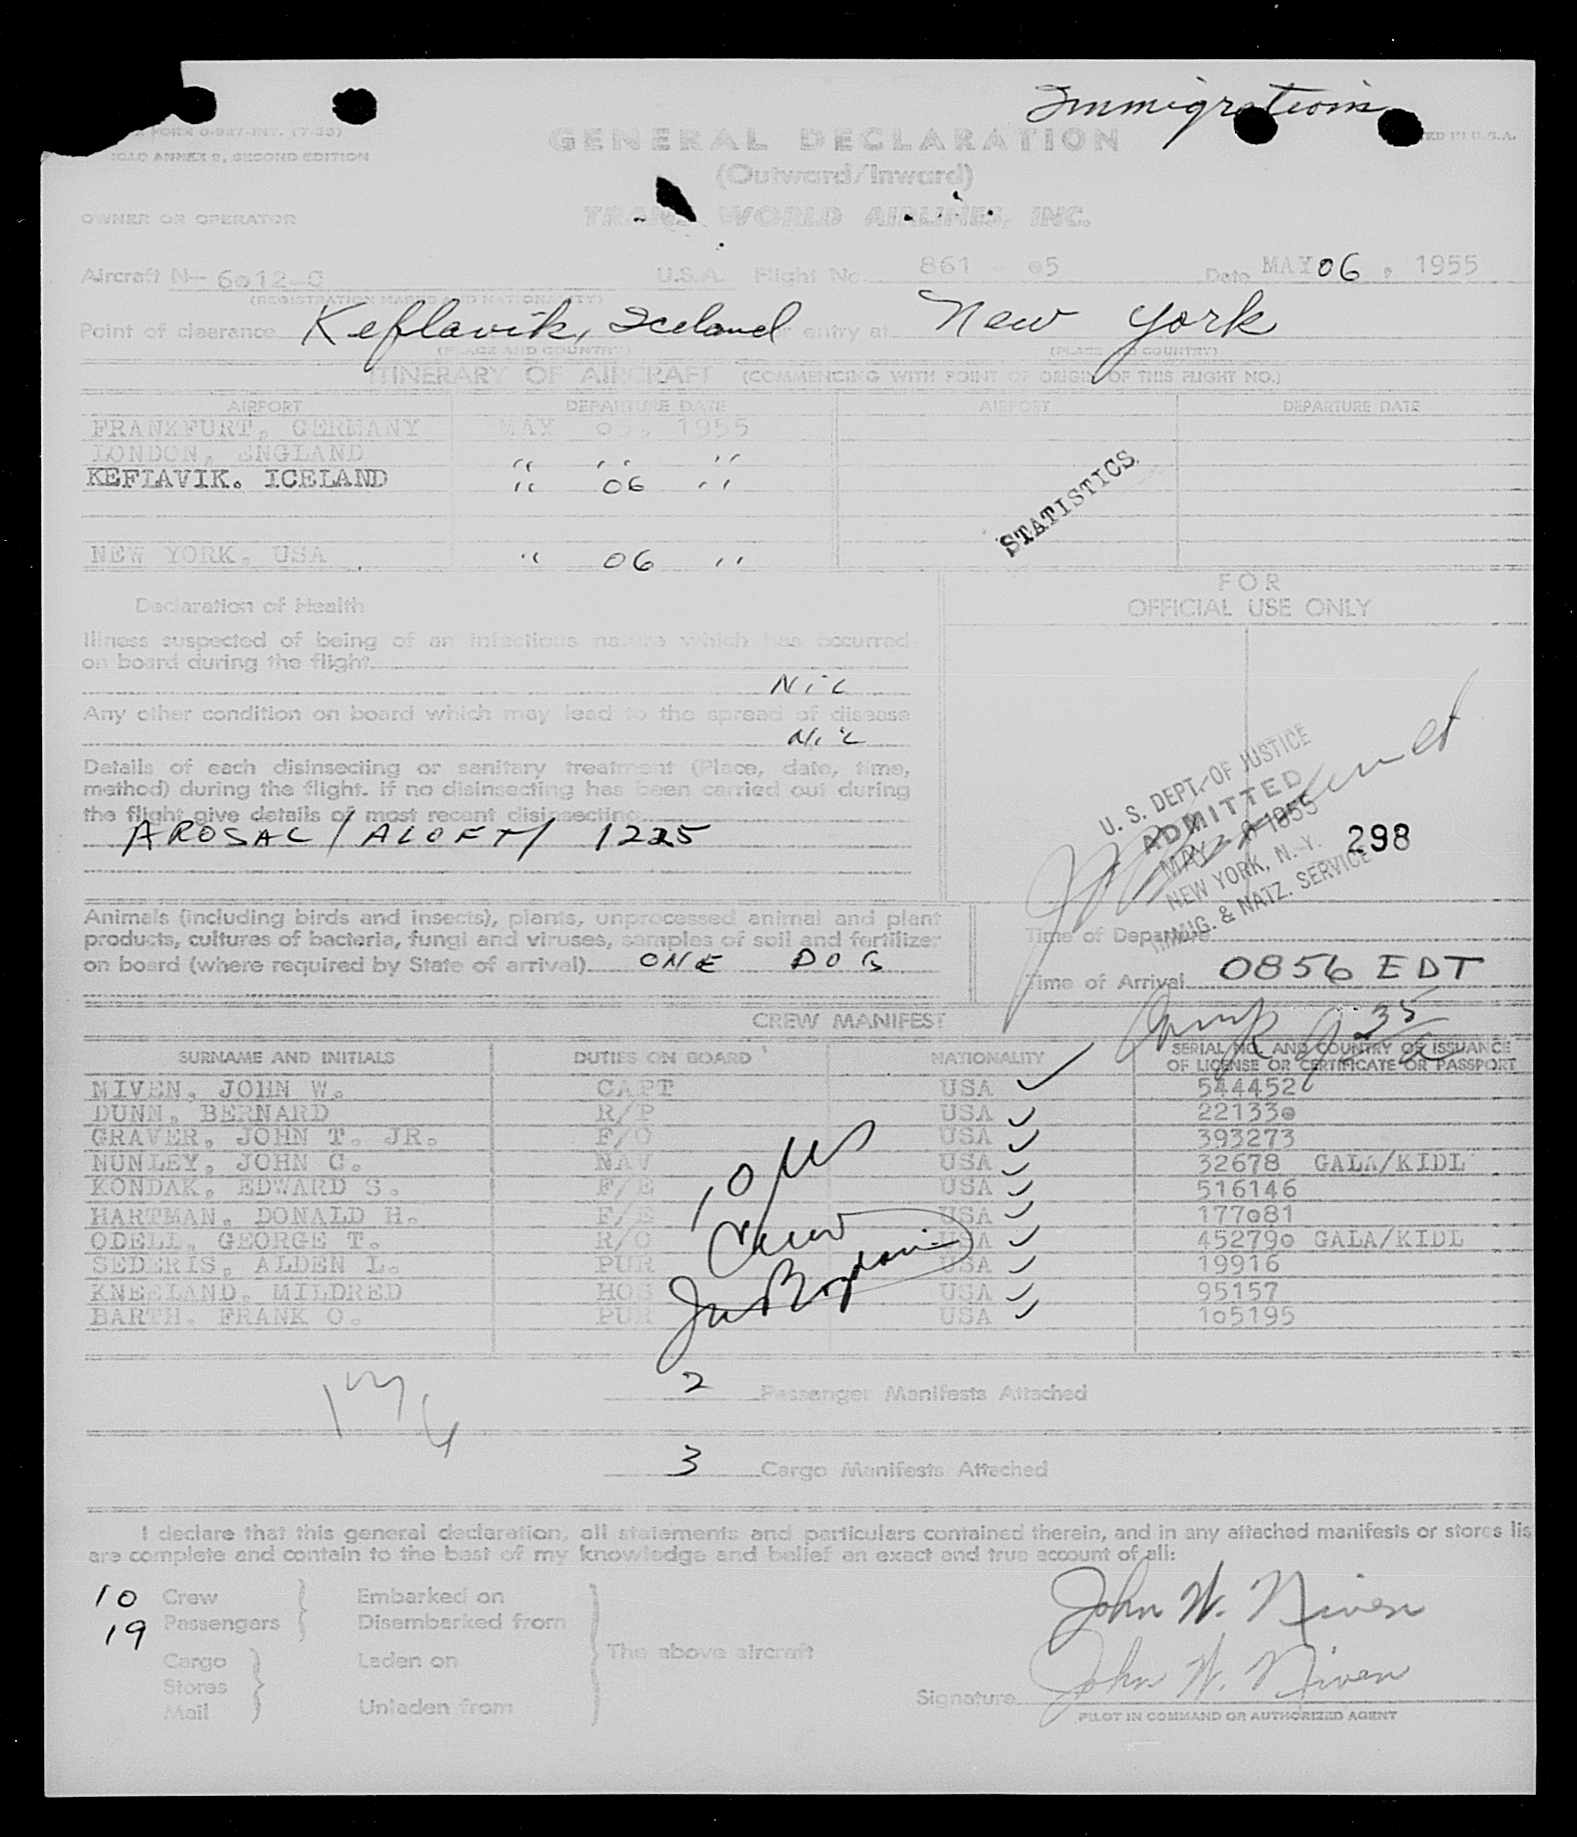 Immigration
ICAO ANNEX 9, SECOND EDITION
GENERAL DECLARATION
(Outward/Inward)
OWNER OR OPERATOR TRANS WORLD AIRLINES, INC.
Aircraft N- 6012-C U.S.A. Flight No. 861 - 05 Date MAY 06, 1955
(REGISTRATION MARKS AND NATIONALITY)
Point of clearance Keflavik, Iceland entry at New York
(PLACE AND COUNTRY) (PLACE AND COUNTRY)
ITINERARY OF AIRCRAFT (COMMENCING WITH POINT OF ORIGIN OF THIS FLIGHT NO.)
AIRPORT DEPARTURE DATE AIRPORT DEPARTURE DATE
FRANKFURT, GERMANY MAY 05, 1955
LONDON, ENGLAND " " "
KEFLAVIK. ICELAND " 06 "
STATISTICS
NEW YORK, USA " 06 "
FOR
OFFICIAL USE ONLY
Declaration of Health
Illness suspected of being of an infectious nature which has occurred
on board during the flight
NiL
Any other condition on board which may lead to the spread of disease
NiL
Details of each disinsecting or sanitary treatment (Place, date, time,
method) during the flight. If no disinsecting has been carried out during
the flight give details of most recent disinsecting
AROSAL/ALOFT/ 1225
U. S. DEPT. OF JUSTICE
ADMITTED
MAY - 6 1955
NEW YORK, N. Y.
IMMIG. & NATZ. SERVICE
298
Animals (including birds and insects), plants, unprocessed animal and plant
products, cultures of bacteria, fungi and viruses, samples of soil and fertilizer
on board (where required by State of arrival) ONE DOG
Time of Departure
Time of Arrival 0856 EDT
CREW MANIFEST
SURNAME AND INITIALS DUTIES ON BOARD NATIONALITY SERIAL NO. AND COUNTRY OF ISSUANCE
OF LICENSE OR CERTIFICATE OR PASSPORT
NIVEN, JOHN W. CAPT USA 544452
DUNN, BERNARD R/P USA 221330
GRAVER, JOHN T. JR. F/O USA 393273
NUNLEY, JOHN C. NAV USA 32678 GALA/KIDL
KONDAK, EDWARD S. F/E USA 516146
HARTMAN, DONALD H. F/E USA 177081
ODELL, GEORGE T. R/O USA 452790 GALA/KIDL
SEDERIS, ALDEN L. PUR USA 19916
KNEELAND, MILDRED HOS USA 95157
BARTH. FRANK O. PUR USA 105195
10 US
Crew
2 Passenger Manifests Attached
3 Cargo Manifests Attached
I declare that this general declaration, all statements and particulars contained therein, and in any attached manifests or stores lis
are complete and contain to the best of my knowledge and belief an exact and true account of all:
10 Crew Embarked on
19 Passengers Disembarked from
Cargo Laden on The above aircraft
Stores
Mail Unladen from
John W. Niven
Signature John W. Niven
PILOT IN COMMAND OR AUTHORIZED AGENT